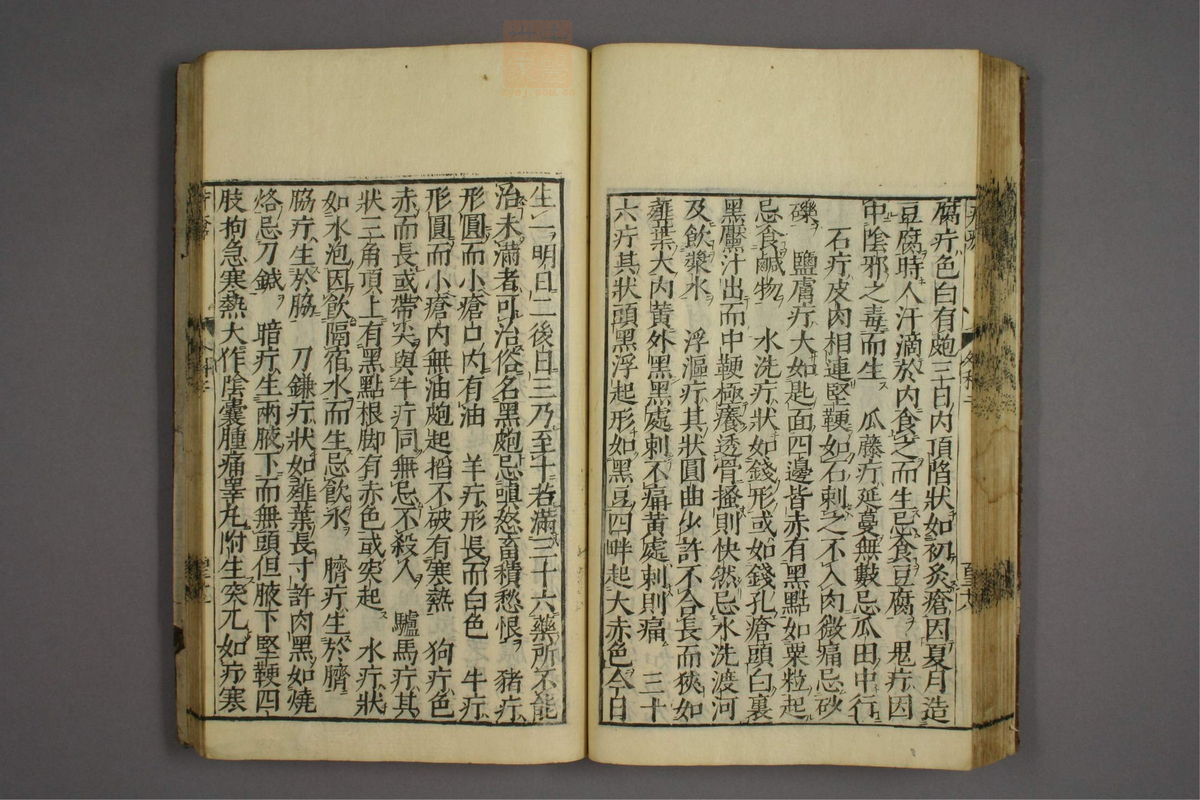 腐疔色白有皰三日内頂陷狀如初灸瘡因夏月造
豆腐時人汗滴於内食之而生忌食豆腐　鬼疔因
中陰邪之毒而生　瓜藤疔延蔓無數忌瓜田中行
石疔皮肉相連堅鞕如石刺之不入肉微痛忌砂
礫　鹽膚疔大如匙面四邊皆赤有黑點如粟粒起
忌食鹹物　水洗疔狀如錢形或如錢孔瘡頭白裏
黑黶汁出而中鞕極癢透骨搔則快然忌水洗渡河
及飲漿水　浮漚疔其狀圓曲少許不合長而狹如
薤葉大内黄外黑黑處刺不痛黄處刺則痛　三十
六疔其狀頭黑浮起形如黑豆四畔起大赤色今日
生一明日二後日三乃至十若滿三十六藥所不能
治未滿者可治俗名黑皰忌嗔怒畜積愁恨　豬疔
形圓而小瘡口内有油　羊疔形長而白色　牛疔
形圓而小瘡内無油皰起掐不破有寒熱　狗疔色
赤而長或帶尖與牛疔同無忌不殺人　驢馬疔其
狀三角頂上有黑點根脚有赤色或突起　水疔狀
如水泡因飲隔宿水而生忌飲水　臍疔生於臍
脇疔生於脇　刀鎌疔狀如薤葉長寸許肉黑如燒
烙忌刀鍼　暗疔生兩腋下而無頭但腋下堅鞕四
肢拘急寒熱大作陰囊腫痛睪丸附生突兀如疔寒